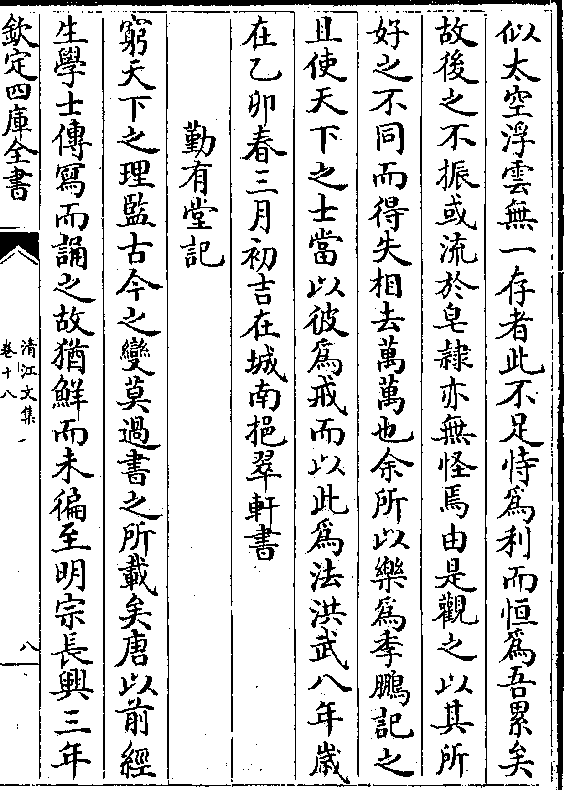 似太空浮雲無一存者此不足恃爲利而恒爲吾累矣
故後之不振或流於皂隷亦無怪焉由是觀之以其所
好之不同而得失相去萬萬也余所以樂爲季鵬記之
且使天下之士當以彼爲戒而以此爲法洪武八年歲
在乙卯春三月初吉在城南挹翠軒書
勤有堂記
窮天下之理監古今之變莫過書之所載矣唐以前經
生學士傳寫而誦之故猶鮮而未徧至明宗長興三年
欽定四庫全書
清江文集
卷十八
八